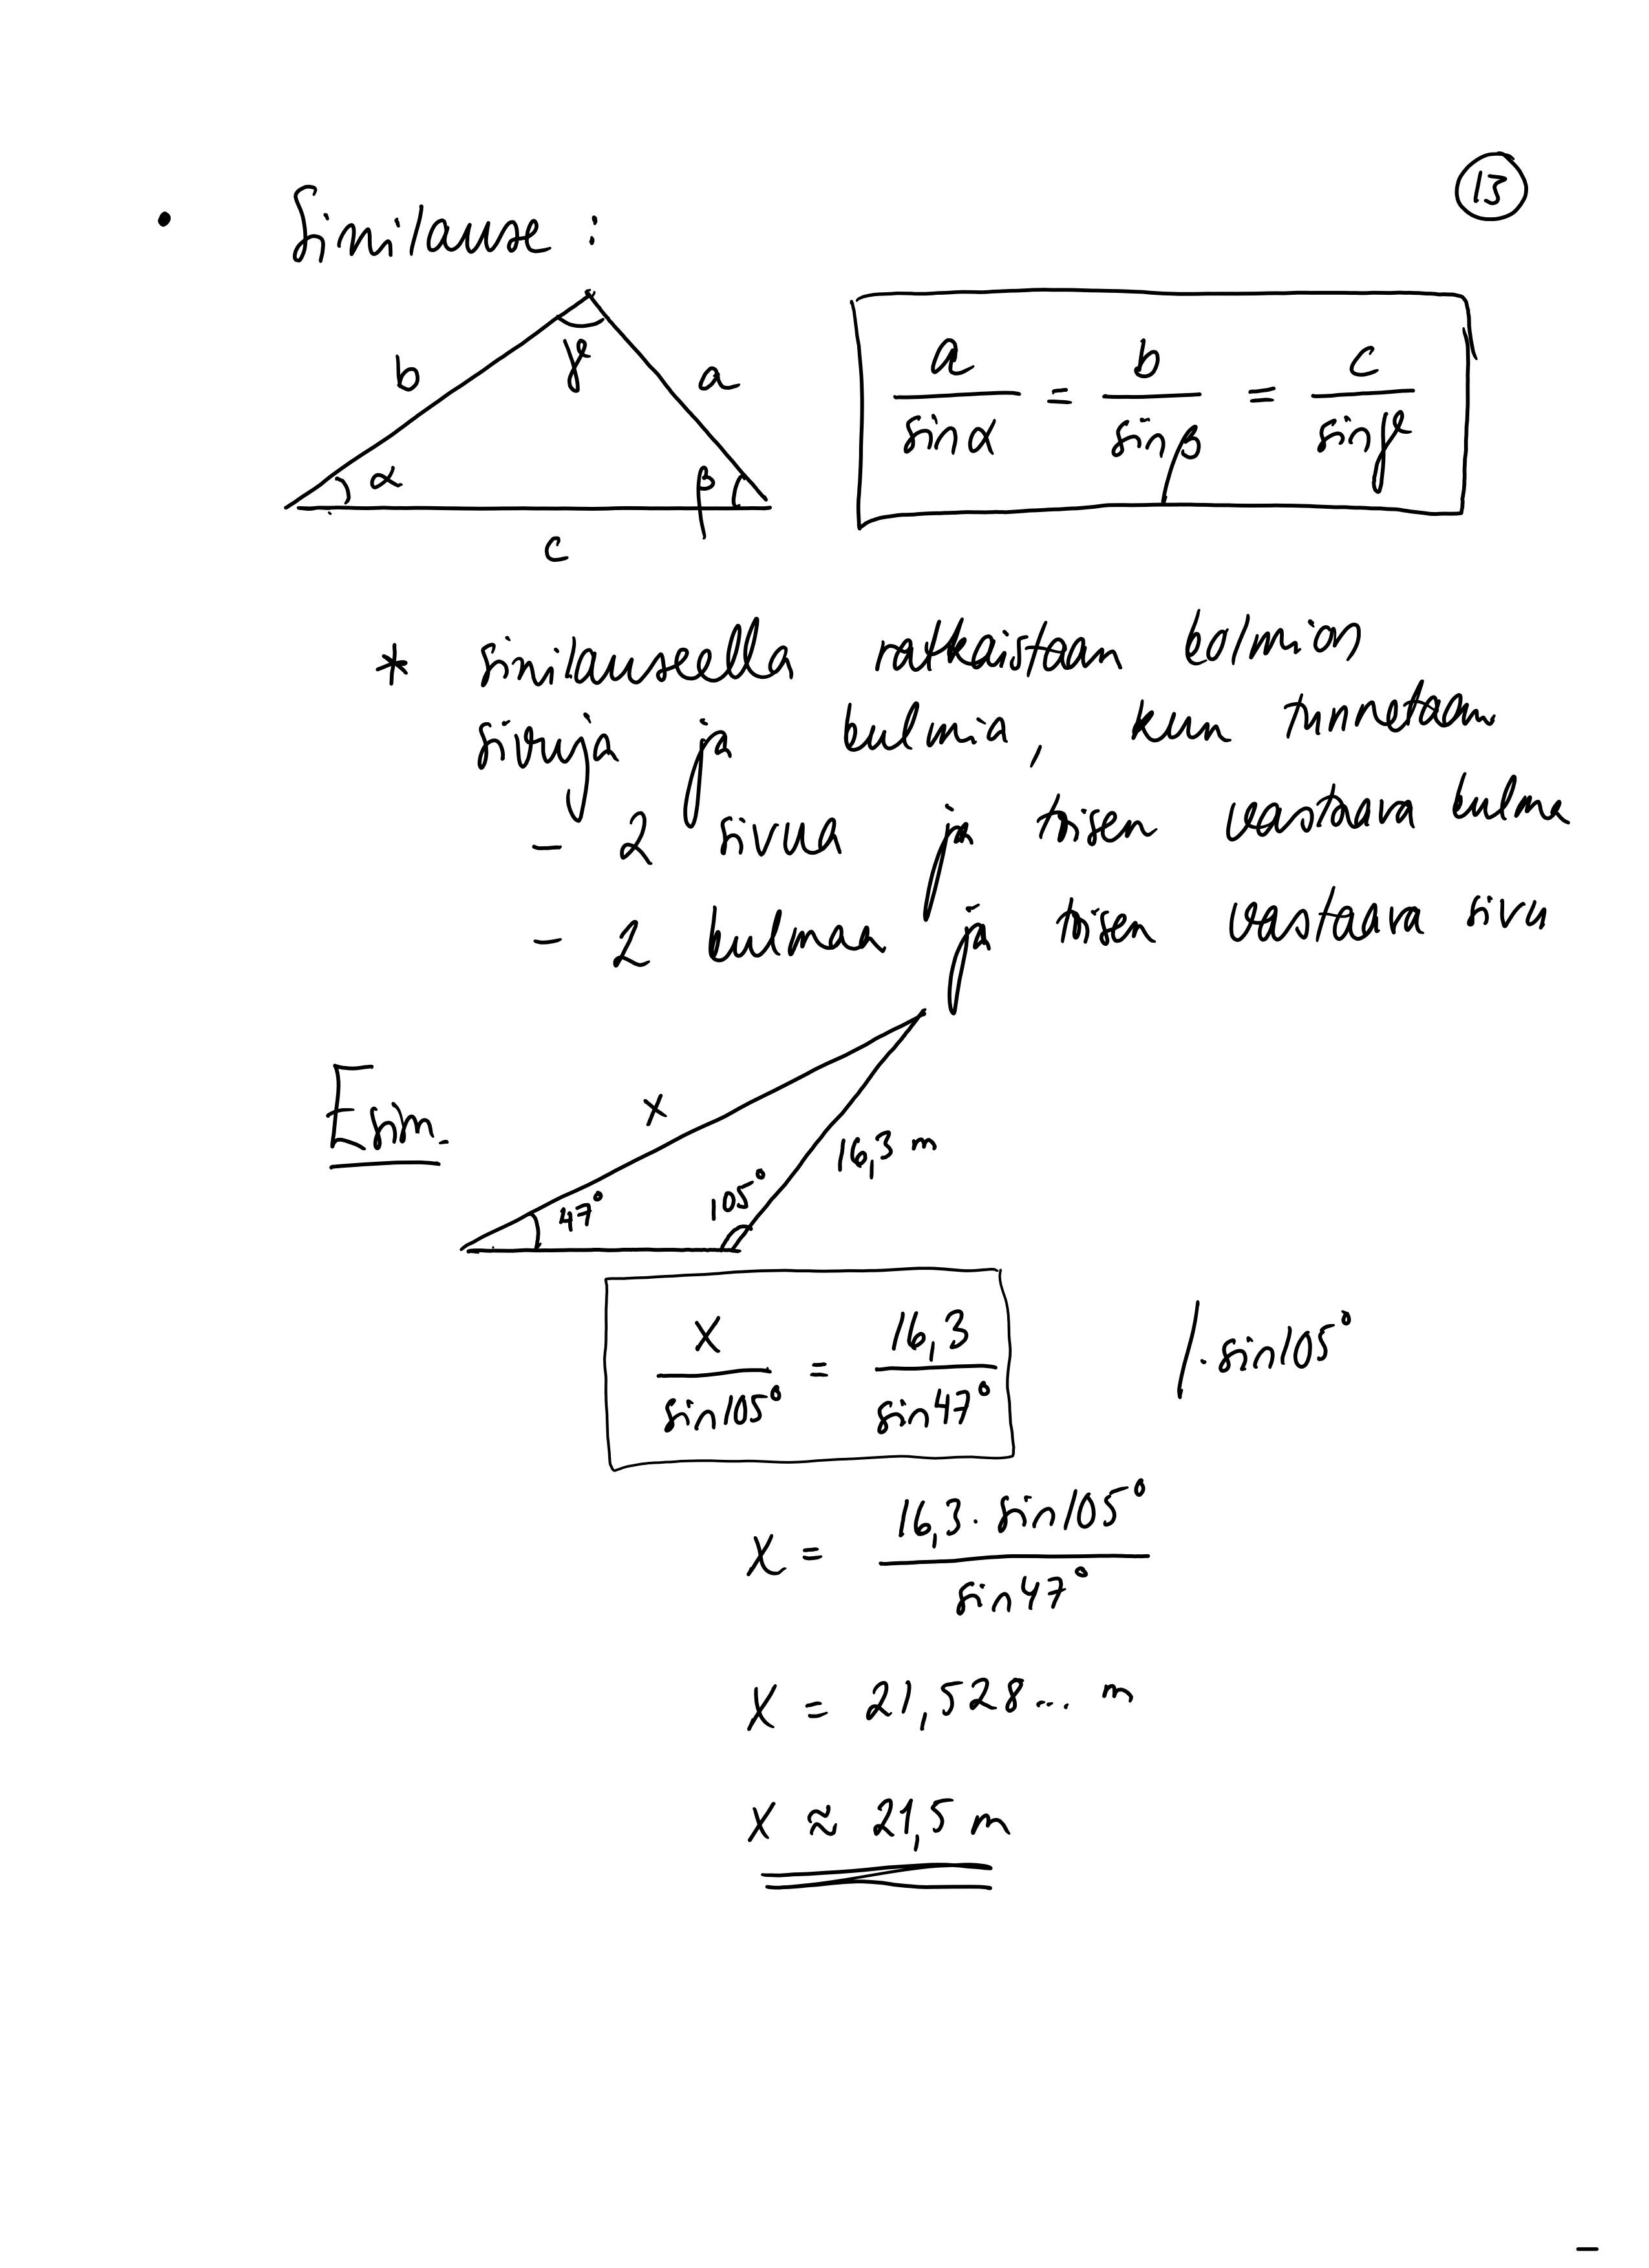 13
• Sinilause:
γ
b
a
α
β
c
a/sinα = b/sinβ = c/sinγ
* sinilauseella ratkaistaan kolmion
sivuja ja kulmia, kun tunnetaan
- 2 sivua ja toisen vastaava kulma
- 2 kulmaa ja toisen vastaava sivu
Esim.
x
16,3 m
47°
105°
x/sin105° = 16,3/sin47° |· sin105°
x = 16,3 · sin105°/sin47°
x = 21,528... m
x ≈ 21,5 m